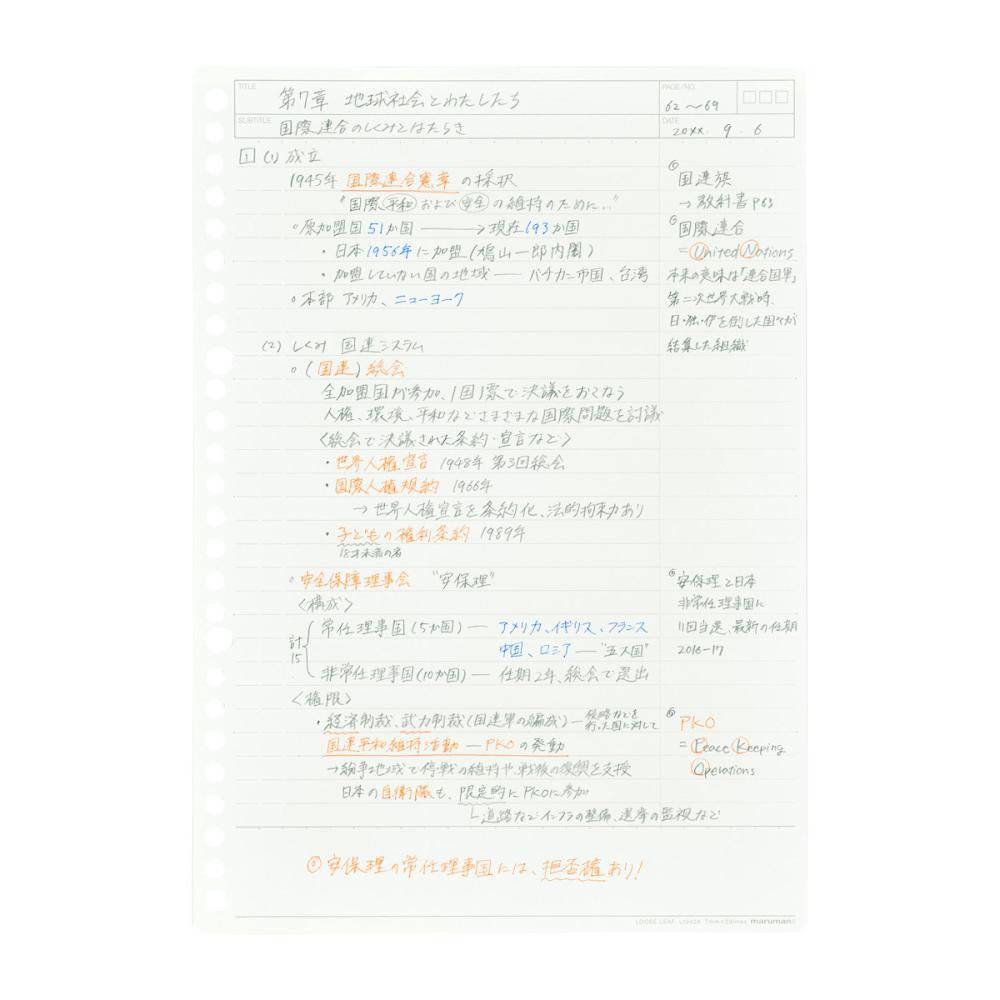 TITLE
第7章 地球社会とわたしたち
PAGE/NO.
62～69
SUBTITLE
国際連合のしくみとはたらき
DATE
20XX. 9. 6
1 (1) 成立
1945年 国際連合憲章 の採択
"国際平和および安全の維持のために…"
○原加盟国51か国 → 現在193か国
・日本1956年に加盟(鳩山一郎内閣)
・加盟していない国の地域 ― バチカン市国、台湾
○本部 アメリカ、ニューヨーク
国連旗
→ 教科書P63
国際連合
=United Nations
本来の意味は「連合国軍」
第二次世界大戦時、
日・独・伊を倒した国々が
結集した組織
(2) しくみ 国連システム
○(国連)総会
全加盟国が参加、1国1票で決議をおこなう
人権、環境、平和などさまざまな国際問題を討議
〈総会で決議された条約・宣言など〉
・世界人権宣言 1948年 第3回総会
・国際人権規約 1966年
→ 世界人権宣言を条約化、法的拘束力あり
・子どもの権利条約 1989年
18才未満の者
○安全保障理事会 "安保理"
〈構成〉
計15
常任理事国(5か国) ― アメリカ、イギリス、フランス
中国、ロシア ― "五大国"
非常任理事国(10か国) ― 任期2年、総会で選出
安保理と日本
非常任理事国に
11回当選、最新の任期
2016-17
〈権限〉
・経済制裁、武力制裁(国連軍の編成) ― 侵略などを
行った国に対して
国連平和維持活動 ― PKOの発動
→紛争地域で停戦の維持や、戦後の復興を支援
日本の自衛隊も、限定的にPKOに参加
└道路などインフラの整備、選挙の監視など
PKO
=Peace Keeping
Operations
◎安保理の常任理事国には、拒否権あり!
LOOSE LEAF L1242A 7mm×29lines maruman